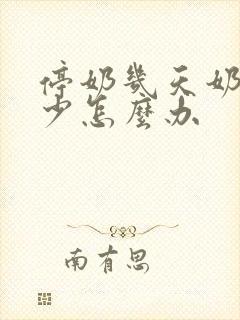 停奶幾天奶
少怎麼办
南有思